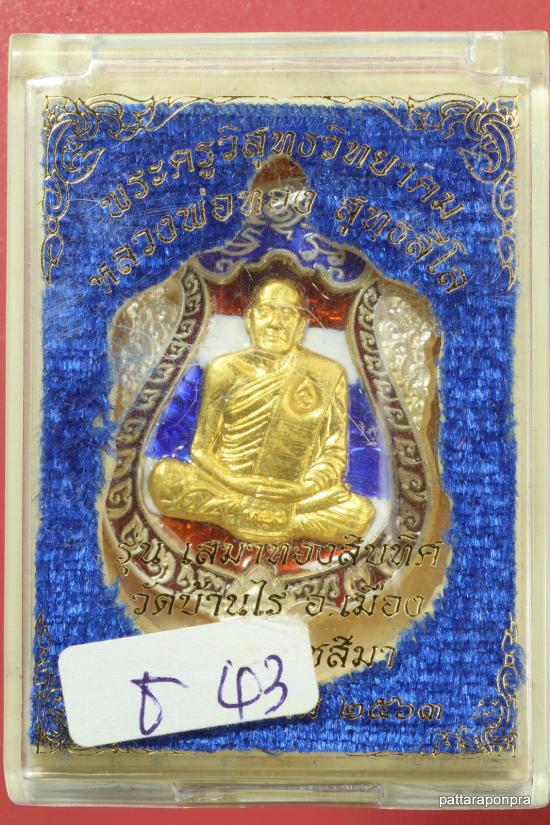 พระครูวิสุทธวิทยาคม
หลวงพ่อทอง สุทฺธสีโล
รุ่น เสมาทองสิบทิศ
วัดบ้านไร่ อ.เมือง
ชสีมา
๒๕๖๓
ธ 43
pattaraponpra